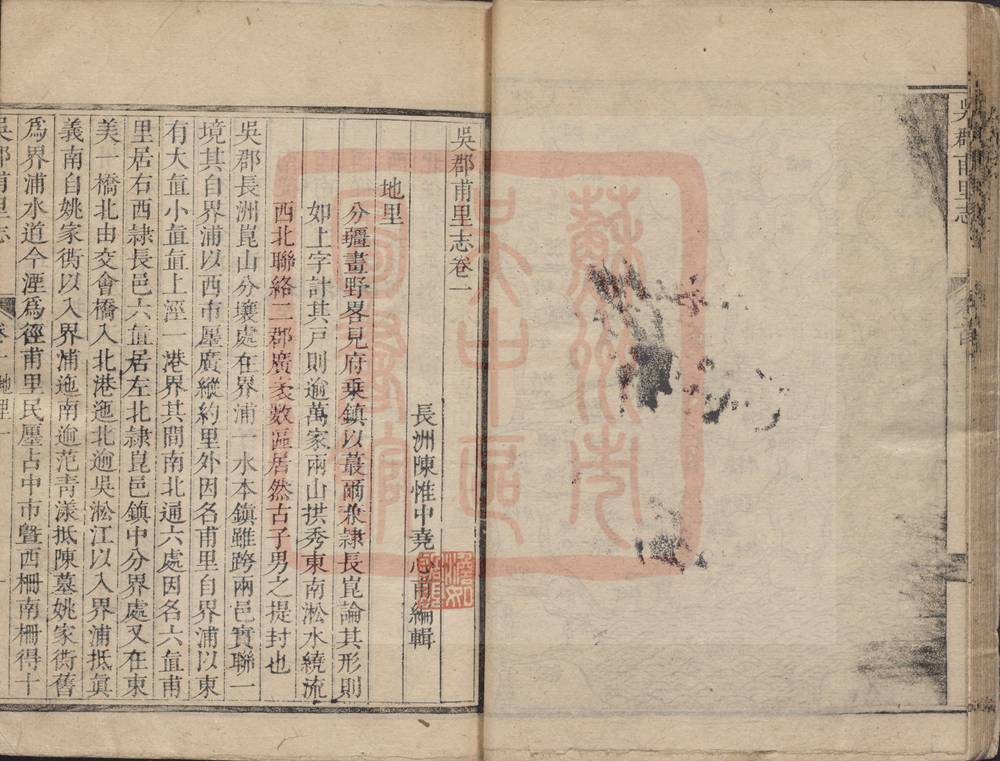 吳郡甫里志
吳郡甫里志卷一
長洲陳惟中堯心甫編輯
地里
分疆畫野畧見府乘鎮以蕞爾兼隸長崑論其形則
如上字計其戶則逾萬家兩山拱秀東南淞水繞流
西北聯絡二郡廣袤数區居然古子男之提封也
吳郡長洲崑山分壤處在界浦一水本鎮雖跨兩邑實聯一
境其自界浦以西市廛廣縱約里外因名甫里自界浦以東
有大直小直直上涇一港界其間南北通六處因名六直甫
里居右西隸長邑六直居左北隸崑邑鎮中分界處又在東
美一橋北由交會橋入北港迤北逾吳淞江以入界浦抵眞
義南自姚家衖以入界浦迤南逾范青漾抵陳墓姚家衖舊
爲界浦水道今湮爲徑甫里民廛占中市曁西柵南柵得十
吳郡甫里志
卷一 地理 一
蘇州市
吳中區
圖書館